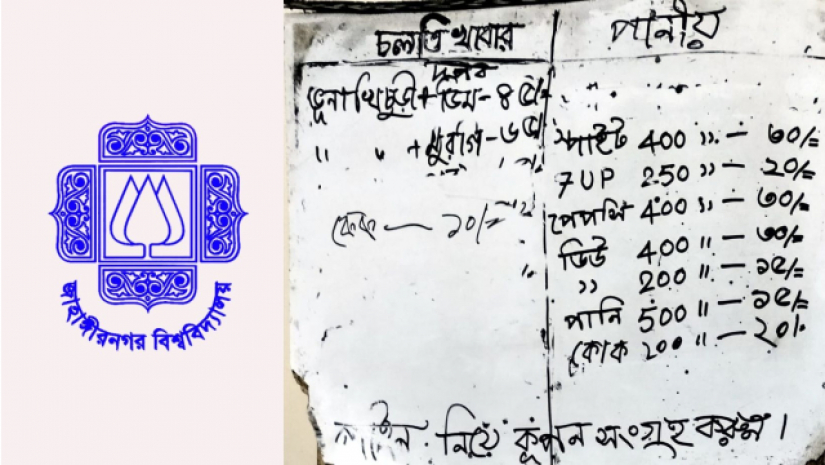 জাহাঙ্গীরনগর বিশ্ববিদ্যালয়
চলতি খাবার
দুপুর
ভূনা খিচুড়ী + ডিম - ৪৫/=
" " + মুরগি - ৬৫/=
কেক — ১০/=
পানীয়
স্পাইট 400 " — ৩০/=
7UP 250 " — ২০/=
পেপসি 400 " — ৩০/=
ডিউ 400 " — ৩০/=
" 200 " — ১৫/=
পানি 500 " — ১৫/=
কোক ২০০ " — ২০/.
লাইন নিয়ে কুপন সংগ্রহ করুন।